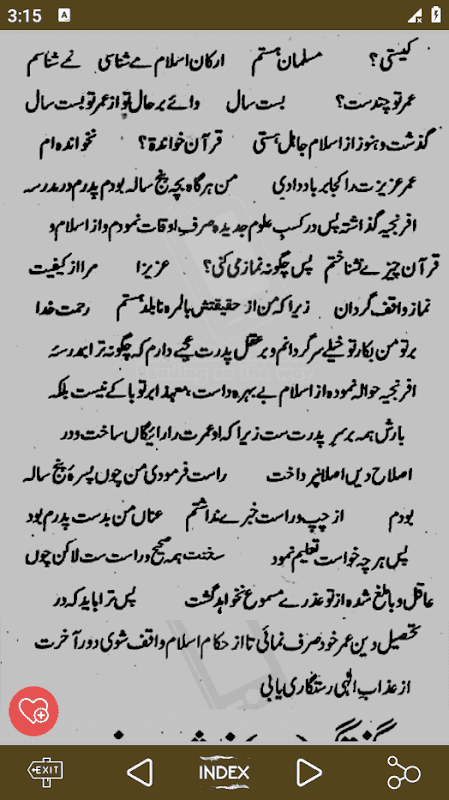 3:15
کیستی؟ مسلمان ہستم ارکان اسلام مے شناسی نمے شناسم
عمر تو چندست؟ بست سال وائے برحال تو از عمر تو بست سال
گذشت و ہنوز از اسلام جاہل ہستی قرآن خواندۂ؟ نخواندہ ام
عمر عزیزت را کجا برباد دادی من ہرگاہ بچہ پنج سالہ بودم پدرم در مدرسہ
افرنجیہ گذاشتہ پس در کسب علوم جدیدہ صرف اوقات نمودم و از اسلام و
قرآن چیزے نشناختم پس چگونہ نماز می کنی؟ عزیزا مرا از کیفیت
نماز واقف گردان زیرا کہ من از حقیقتش بالمرہ نابلد ہستم رحمت خدا
بر تو من بکار تو خیلے سرگردانم و بر عقل پدرت عجبے دارم کہ چگونہ ترا بمدرسۂ
افرنجیہ حوالہ نمودہ از اسلام بے بہرہ داست معہذا بر تو باکے نیست بلکہ
بارش ہمہ بر سر پدرت ست زیرا کہ او عمرت را رائیگاں ساخت و در
اصلاح دیں اصلا نپرداخت راست فرمودی من چوں پسرۂ پنج سالہ
بودم از چپ و راست خبرے نداشتم عنان من بدست پدرم بود
پس ہرچہ خواست تعلیم نمود سخنت ہمہ صحیح و راست ست لاکن چوں
عاقل و بالغ شدہ از تو عذرے مسموع نخواہد گشت پس ترا باید کہ در
تحصیل دین عمر خود صرف نمائی تا از احکام اسلام واقف شوی و در آخرت
از عذاب الٰہی رستگاری یابی
EXIT INDEX